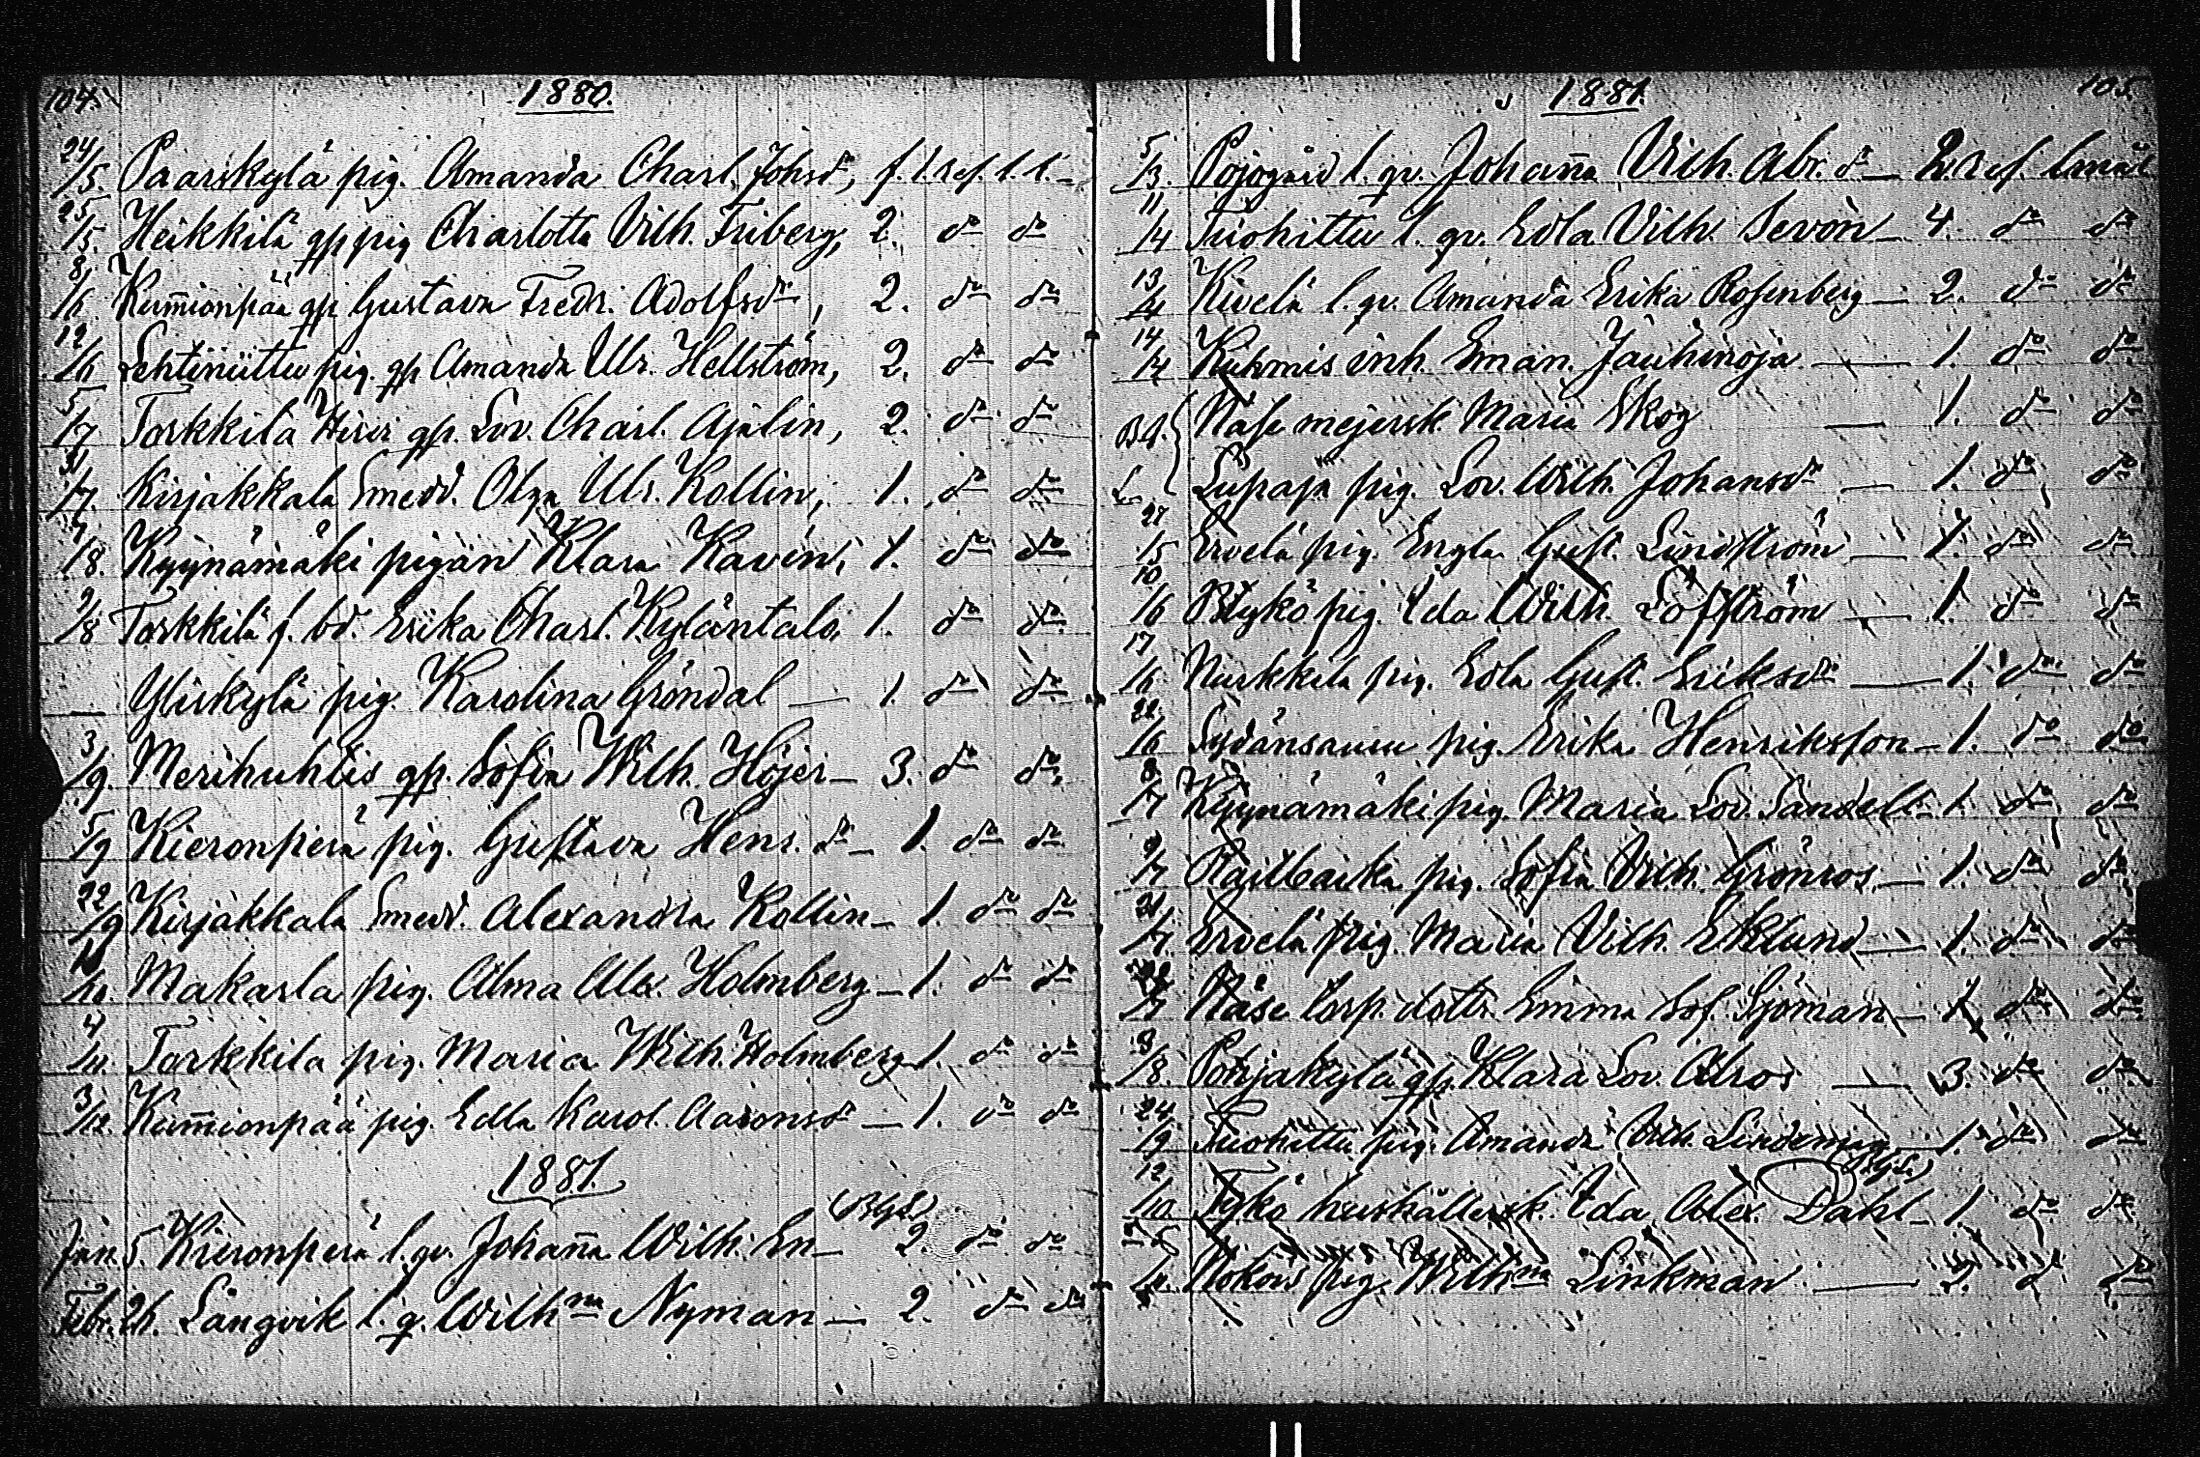 104.
1880.
24/5. Paarskylä pig. Amanda Charl. Johsdr, f. l. ref. l. l. –
25/5. Heikkilä gp pig Charlotta Vilh. Friberg, 2. do do
8/6 Kum̅ionpää gp Gustava Fredr. Adolfsdr, 2. do do
12/6 Lehtiniittu pig. gp Amanda Ulr. Hellström, 2. do do
5/7 Torkkila gp. Lov. Charl. Ajalin, 2. do do
31/7. Kirjakkala Smedd. Olga Ulr. Kollin, 1. do do
7/8. Kyynämäki pigan Klara Kavén, 1. do do
9/8 Torkkila f. bd. Erika Charl. Kyläntalo, 1. do do
Yliskylä pig. Karolina Gröndal — 1. do do
3/9. Merihuhtis gp. Sofia Wilh. Höjer – 3. do do
5/9 Kieronperä pig. Gustava Henr. dr – 1. do do
22/9 Kirjakkala Smedd. Alexandra Kollin – 1. do do
/10. Makarla pig. Alma Alex. Holmberg – 1. do do
4/11. Torkkila pig. Maria Wilh. Holmberg – 1. do do
3/12. Kum̅ionpää pig. Edla Karol. Aaronsdr – 1. do do
1881.
(BGL)
Jan. 5. Kieronperä l. qv. Johan̅a Wilh. En – 2. do do
Febr. 26. Långvik l. q. Wilhma Nyman – 2. do do
1881.
105.
5/3. Pojogård l. qv. Johan̅a Vilh. Abr. dr — 2. ref. lmäl
11/4 Tuohittu l. qv. Edla Vilh. Sevon – 4. do do
13/4 Kivelä l. qv. Amanda Erika Rosenberg – 2. do do
14/4 Kuhmis inh. Eman. Jauhinoja — 1. do do
Näse mejersk. Maria Skog — 1. do do
Lupaja pig. Lov. Wilh. Johansdr — 1. do do
27/5 Ervelä pig. Engla Gust. Lindström — 1. do do
10/6 pig. Ida Wilh. Löfström — 1. do do
17/6 Nurkkila pig. Edla Gust. Eriksdr — 1. do do
22/6 Sydänsauru pig. Erika Henriksson – 1. do do
8/7 Kyynämäki pig. Maria Lov. Sandell – 1. do do
9/7 pig. Sofia Vilh. Grönros – 1. do do
21/7 Ervelä pig. Maria Vilh. Eklund – 1. do do
/7 Näse torp. dottr. Emma Sof. Sjöman – 1. do do
3/8. Pohjakylä gp. Klara Lov. Alros — 3. do do
24/9 Tuohittu pig. Amanda Vilh. Lindeman – 1. do do
12/10. Tykö hushållersk. Ida Alex. Dahl – 1. do do
/11. pig. Wilhma Linkman — 2. do do